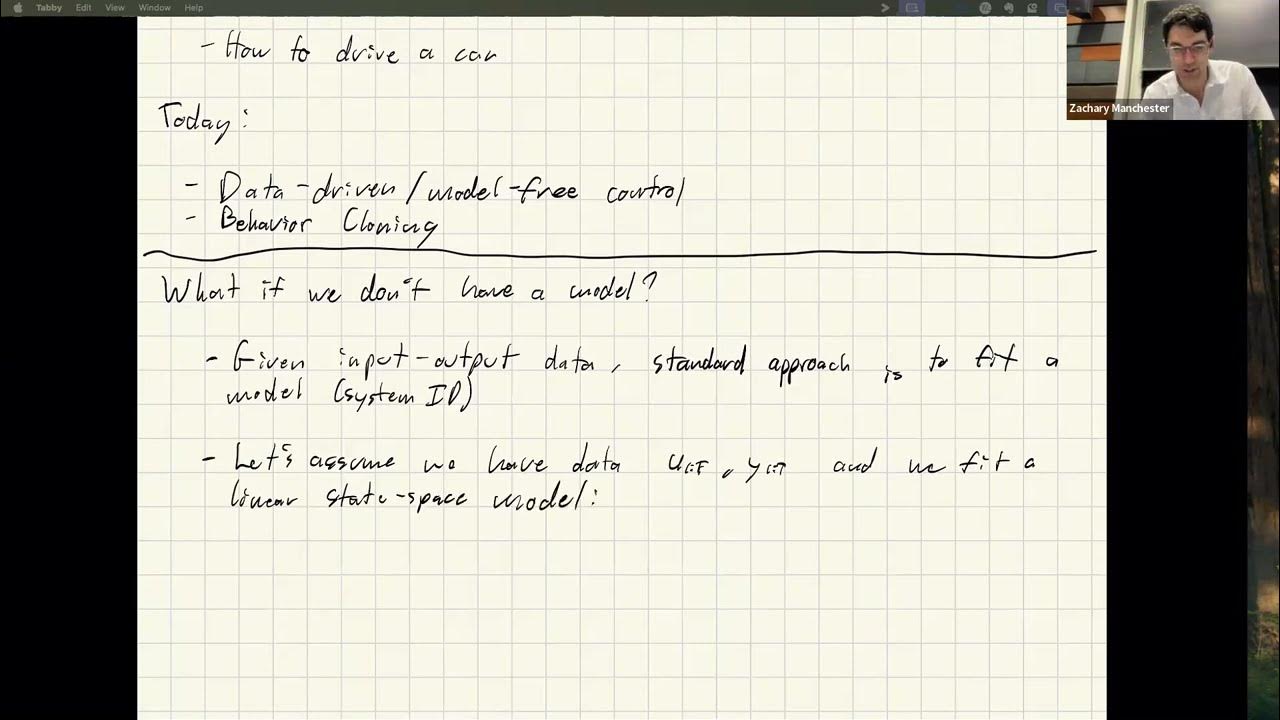 Tabby Edit View Window Help
Zachary Manchester
- How to drive a car
Today:
- Data-driven/model-free control
- Behavior Cloning
What if we don't have a model?
- Given input-output data, standard approach is to fit a
model (system ID)
- Let's assume we have data u₁:T, y₁:T and we fit a
linear state-space model: